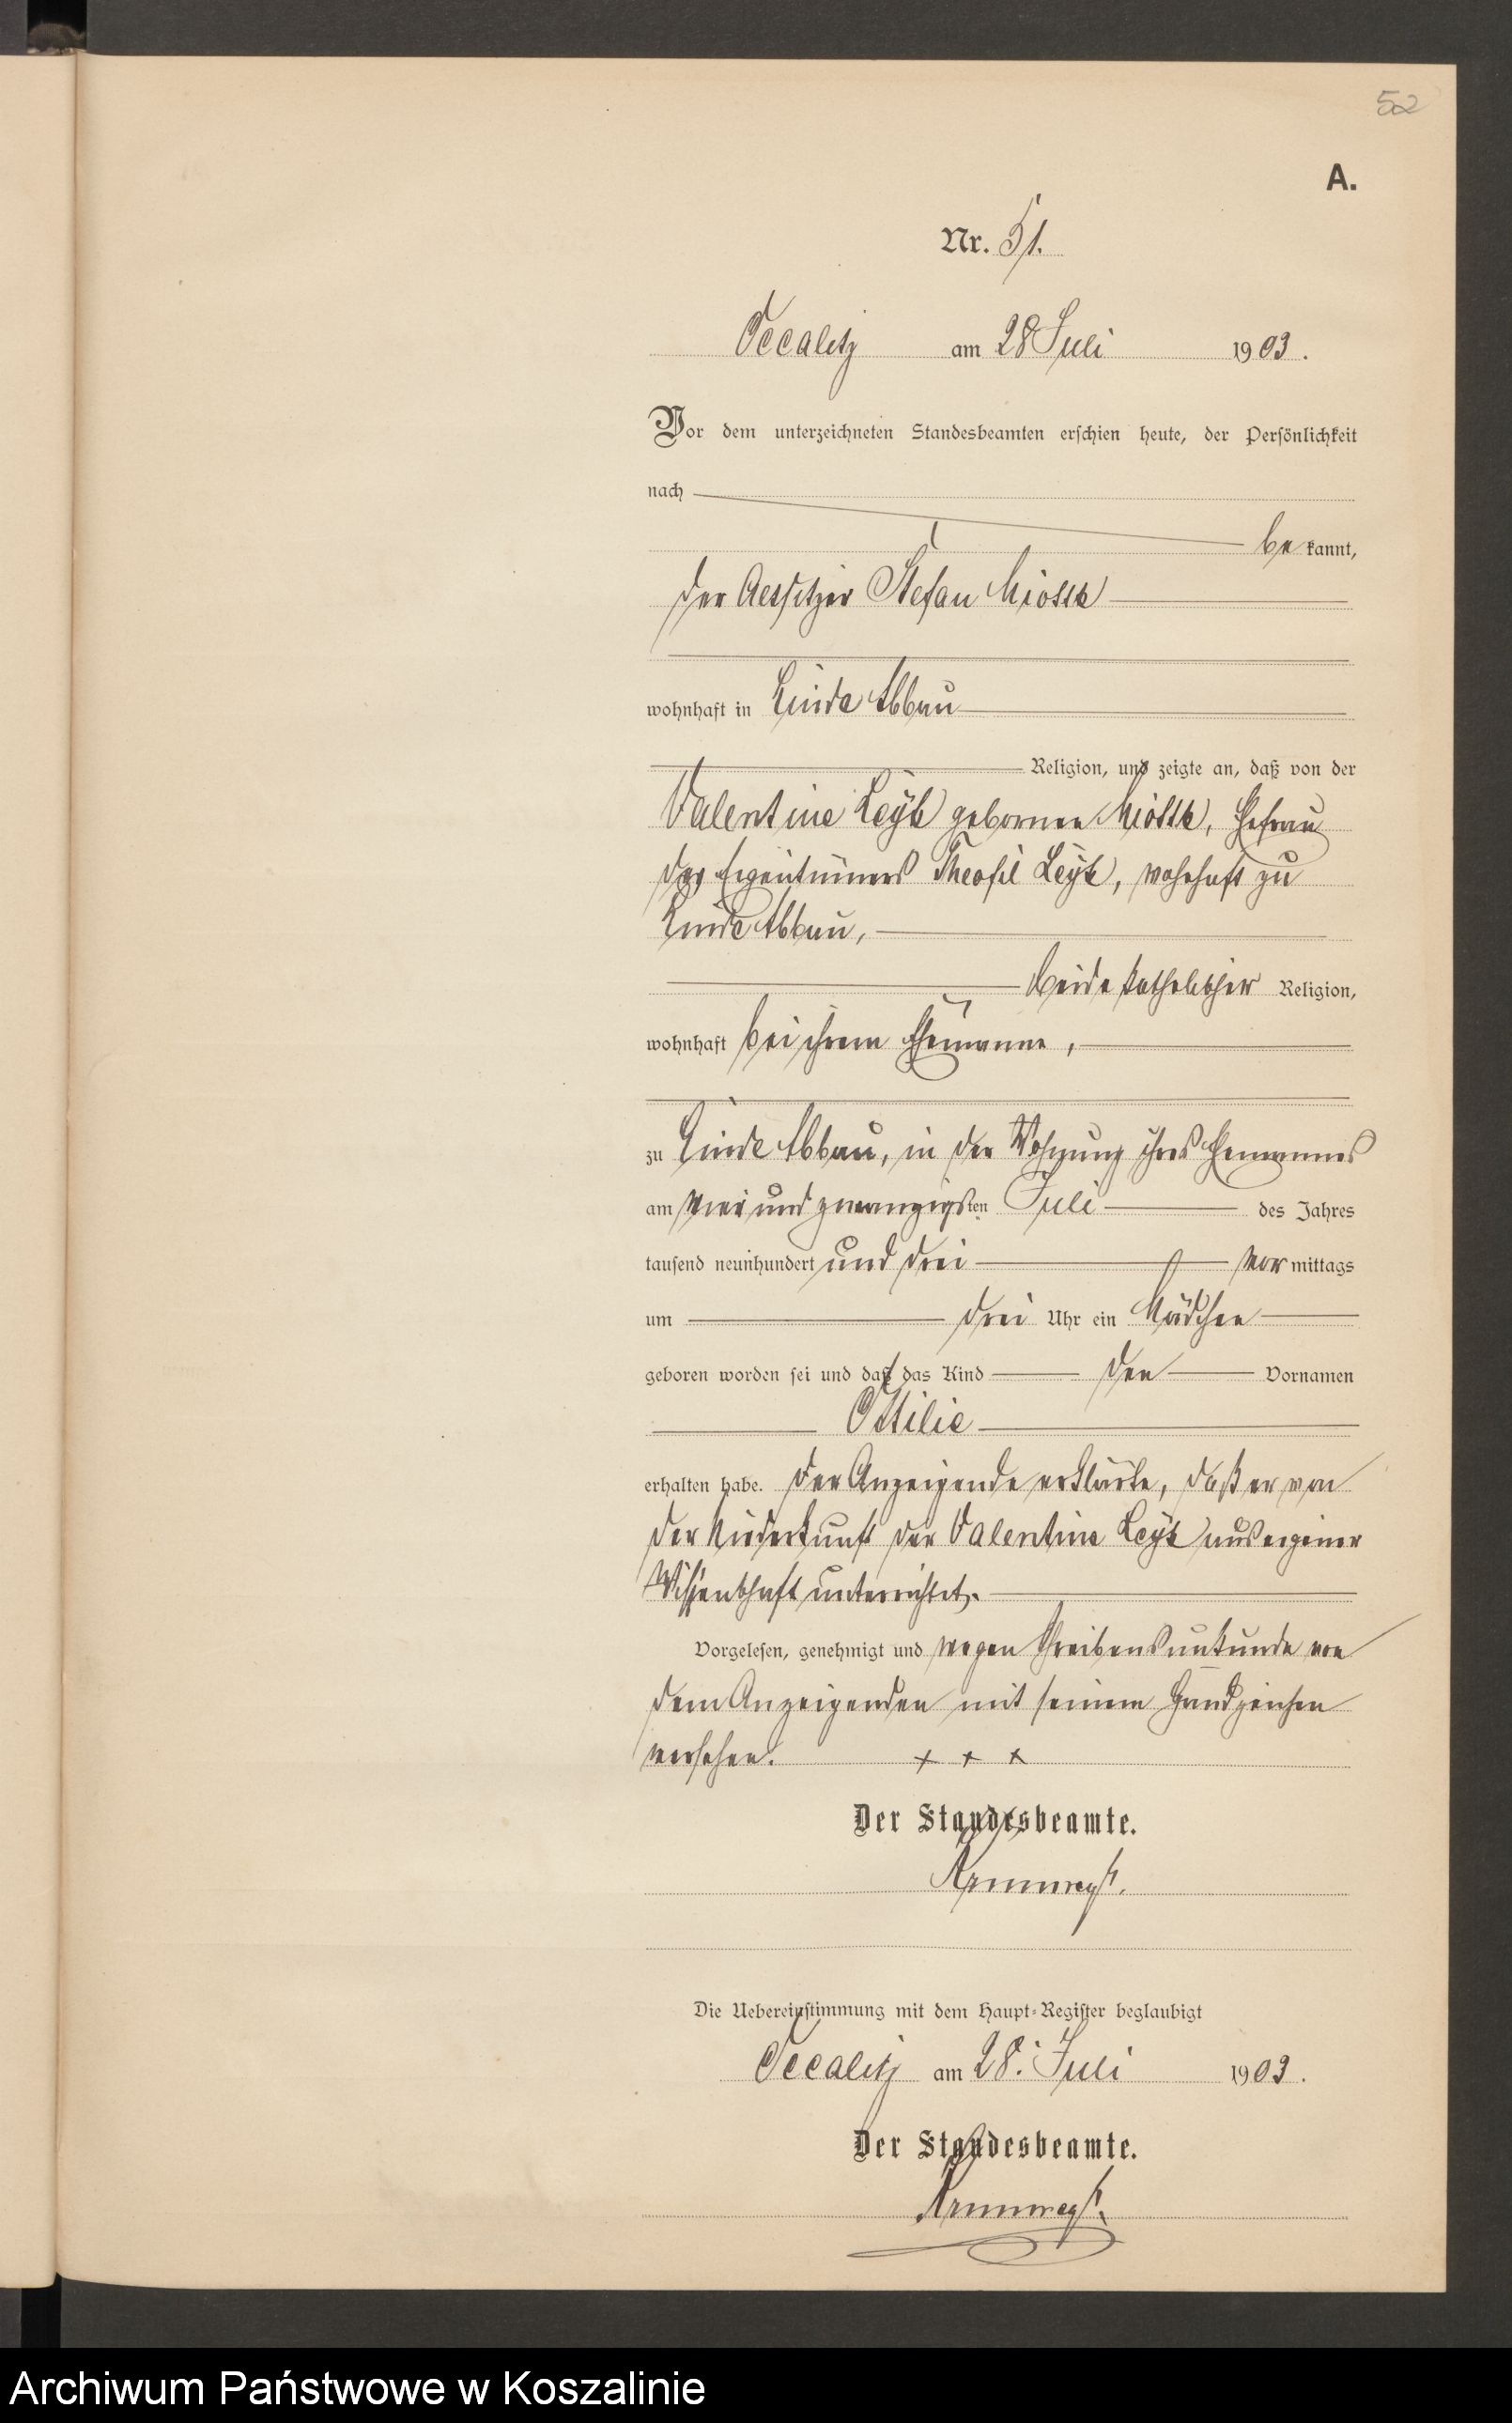 52
A.
Nr. 51.
Oecalitz am 28 Juli 1903.
Vor dem unterzeichneten Standesbeamten erschien heute, der Persönlichkeit
nach
be kannt,
der Stefan Miotk
wohnhaft in Linde Abbau
Religion, und zeigte an, daß von der
Valentine Leyk geborene Miotk, Ehefrau
des Eigentümers Theofil Leyk, wohnhaft zu
Linde Abbau,
beide katholischer Religion,
wohnhaft bei ihrem Ehemanne,
zu Linde Abbau, in der Wohnung ihres Ehemannes
am vier und zwanzigsten Juli des Jahres
tausend neunhundert und drei vor mittags
um drei Uhr ein Mädchen
geboren worden sei und daß das Kind den Vornamen
Ottilie
erhalten habe. Der Anzeigende erklärte, daß er von
der Niederkunft der Valentine Leyk aus eigener
Wissenschaft unterrichtet.
Vorgelesen, genehmigt und wegen Schreibensunkunde von
dem Anzeigenden mit seinem Handzeichen
versehen. + + +
Der Standesbeamte.
Die Uebereinstimmung mit dem Haupt-Register beglaubigt
Oecalitz am 28. Juli 1903.
Der Standesbeamte.
Archiwum Państwowe w Koszalinie